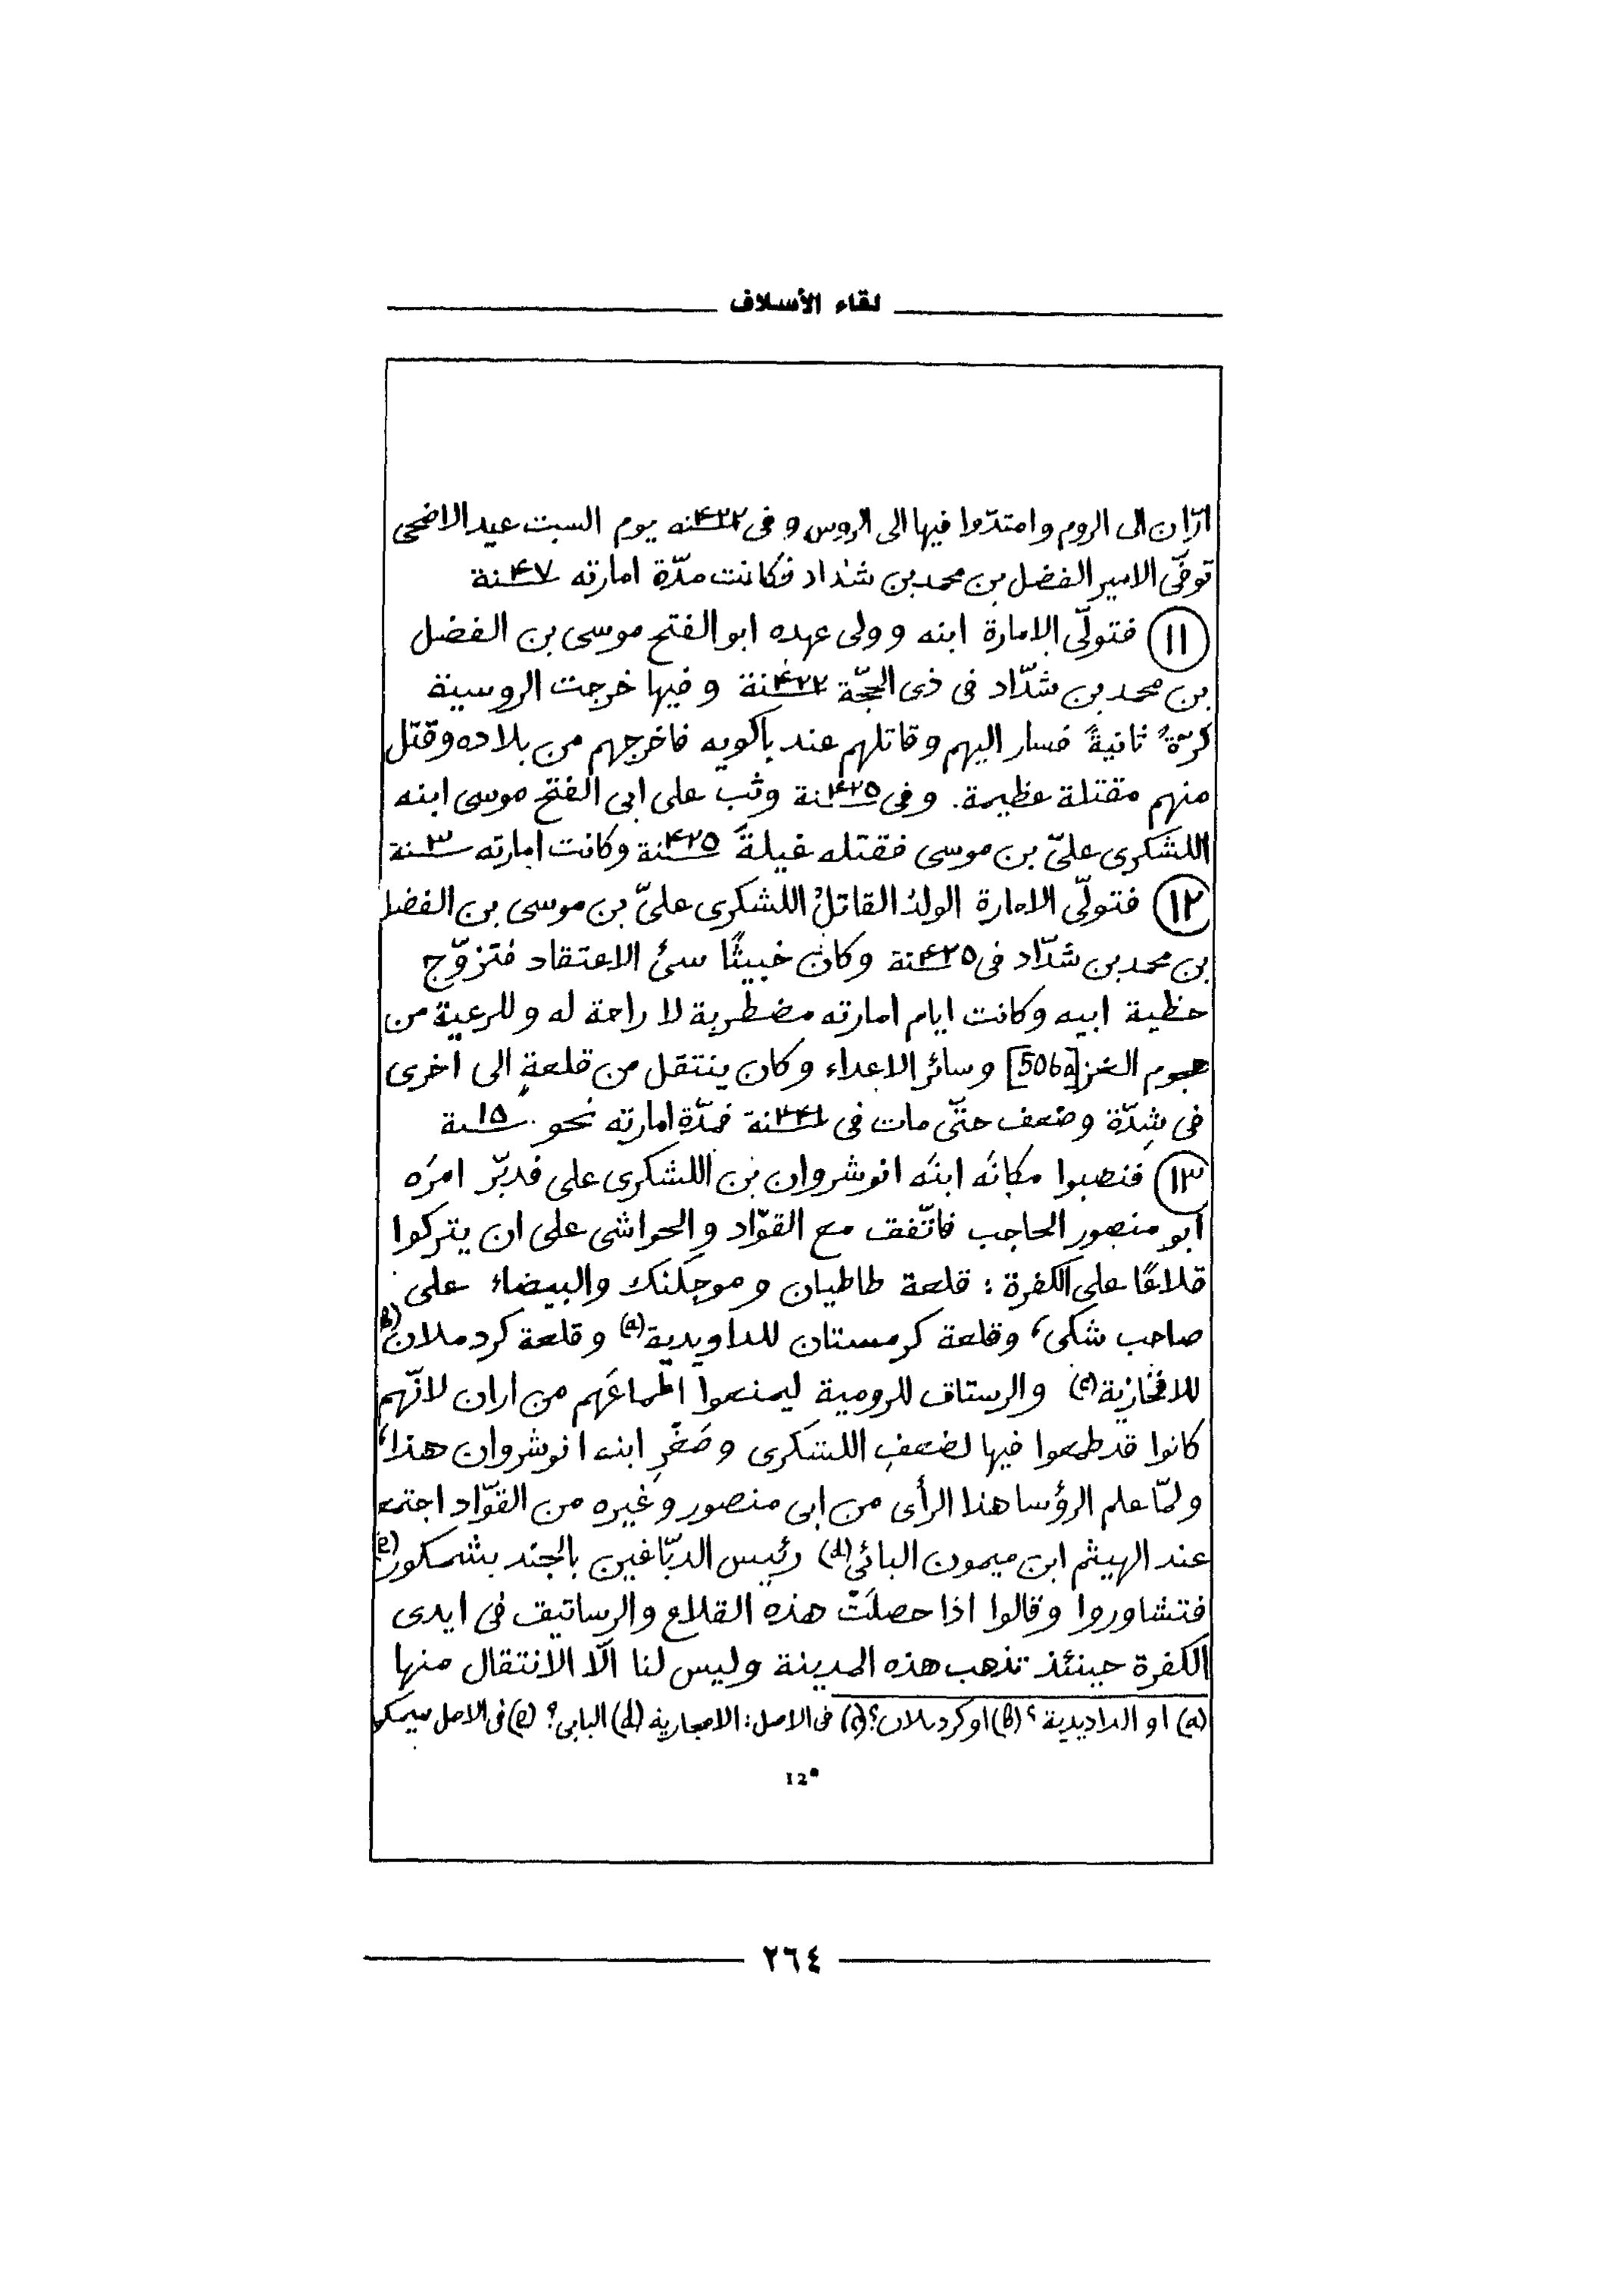 لقاء الأسلاف
ارّان الى الروم وامتدّوا فيها الى الروس و فى سنه ۴۲۲ يوم السبت عيد الاضحى
توفّى الامير الفضل بن محمد بن شداد فكانت مدّة امارته ۴۷ سنة
(۱۱) فتولّى الامارة ابنه وولى عهده ابو الفتح موسى بن الفضل
بن محمد بن شدّاد فى ذى الحجّة سنة ۴۲۲ وفيها خرجت الروسية
كرّةً ثانيةً فسار اليهم وقاتلهم عند باكويه فاخرجهم من بلاده وقتل
منهم مقتلة عظيمة. وفى سنة ۴۲۵ وثب على ابى الفتح موسى ابنه
اللشكرى علىّ بن موسى فقتله غيلةً سنة ۴۲۵ وكانت امارته ۳ سنة
(۱۲) فتولّى الامارة الولدُ القاتلُ اللشكرى علىّ بن موسى بن الفضل
بن محمد بن شدّاد فى سنة ۴۲۵ وكان خبيثًا سىئ الاعتقاد فتزوّج
حظية ابيه وكانت ايام امارته مضطربة لا راحة له وللرعية من
هجوم الغز [506a] وسائر الاعداء وكان ينتقل من قلعةٍ الى اخرى
فى شِدّة وضعف حتّى مات فى سنة فمدّة امارته نحو ۱۵ سنة
(۱۳) فنصبوا مكانَه ابنَه انوشروان بن اللشكرى على فدبّر امرَه
ابو منصور الحاجب فاتّفق مع القوّاد والحواشى على ان يتركوا
قلاعًا على الكفرة : قلعة طاطيان وموجكنك والبيضاء على
صاحب شكى، وقلعة كرمستان للداويدية (a) وقلعة كردملان (b)
للافخازية (c) والرستاق للرومية ليمنعوا اطماعَهم من اران لانّهم
كانوا قد طمعوا فيها لضعفِ اللشكرى وصَغَرِ ابنه انوشروان هذا،
ولمّا علم الرؤسا هذا الرأى من ابى منصور وغيره من القوّاد اجتمع
عند الهيثم ابن ميمون البائى (d) رئيس الدبّاغين بالجند بشمكور (e)
فتشاوروا وقالوا اذا حصلَتْ هذه القلاع والرساتيق فى ايدى
الكفرة حينئذ تذهب هذه المدينة وليس لنا الّا الانتقال منها
(a) او الداديدية ؟ (b) او كردىلان؟ (c) فى الاصل: الامجارية (d) البابى؟ (e) فى الاصل
12*
٢٦٤